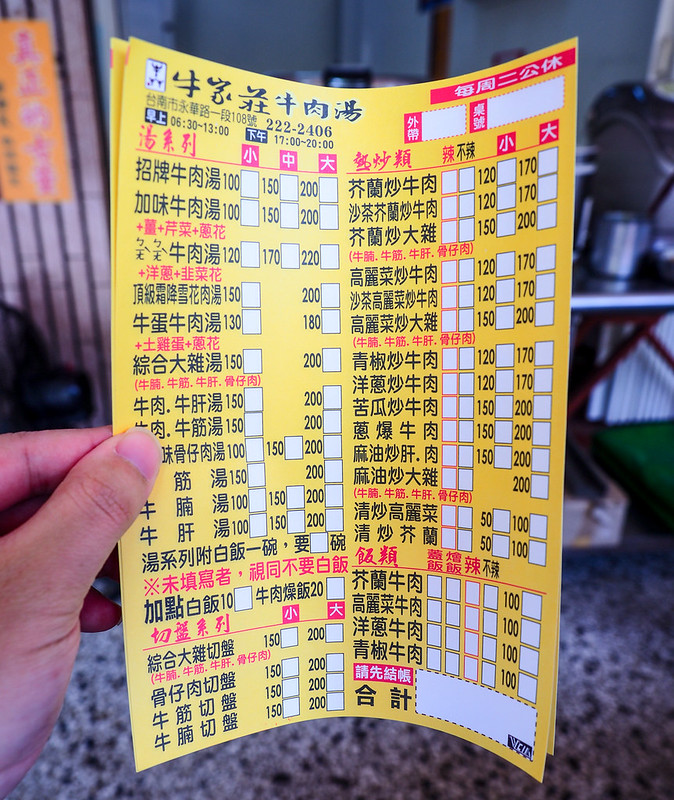 牛家莊牛肉湯
每周二公休
台南市永華路一段108號
早上 06:30~13:00 222-2406
下午 17:00~20:00
外帶
桌號
湯系列 小 中 大
招牌牛肉湯 100 150 200
加味牛肉湯 100 150 200
+薑+芹菜+蔥花
ㄆㄟˋㄆㄟˋ牛肉湯 120 170 220
+洋蔥+韭菜花
頂級霜降雪花肉湯 150 200
牛蛋牛肉湯 130 180
+土雞蛋+蔥花
綜合大雜湯 150 200
(牛腩. 牛筋. 牛肝. 骨仔肉)
牛肉. 牛肝湯 150 200
牛肉. 牛筋湯 150 200
味骨仔肉湯 100 150 200
筋湯 150 200
牛腩湯 100 150 200
牛肝湯 100 150 200
湯系列附白飯一碗，要 碗
※未填寫者，視同不要白飯
加點 白飯10 牛肉燥飯20
切盤系列 小 大
綜合大雜切盤 150 200
(牛腩. 牛筋. 牛肝. 骨仔肉)
骨仔肉切盤 150 200
牛筋切盤 150 200
牛腩切盤 150 200
熱炒類 辣 不辣 小 大
芥蘭炒牛肉 120 170
沙茶芥蘭炒牛肉 120 170
芥蘭炒大雜 150 200
(牛腩. 牛筋. 牛肝. 骨仔肉)
高麗菜炒牛肉 120 170
沙茶高麗菜炒牛肉 120 170
高麗菜炒大雜 150 200
(牛腩. 牛筋. 牛肝. 骨仔肉)
青椒炒牛肉 120 170
洋蔥炒牛肉 120 170
苦瓜炒牛肉 150 200
蔥爆牛肉 150 200
麻油炒肝.肉 150 200
麻油炒大雜 200
(牛腩. 牛筋. 牛肝. 骨仔肉)
清炒高麗菜 50 100
清炒芥蘭 50 100
飯類 蓋飯 燴飯 辣 不辣
芥蘭牛肉 100
高麗菜牛肉 100
洋蔥牛肉 100
青椒牛肉 100
請先結帳
合計